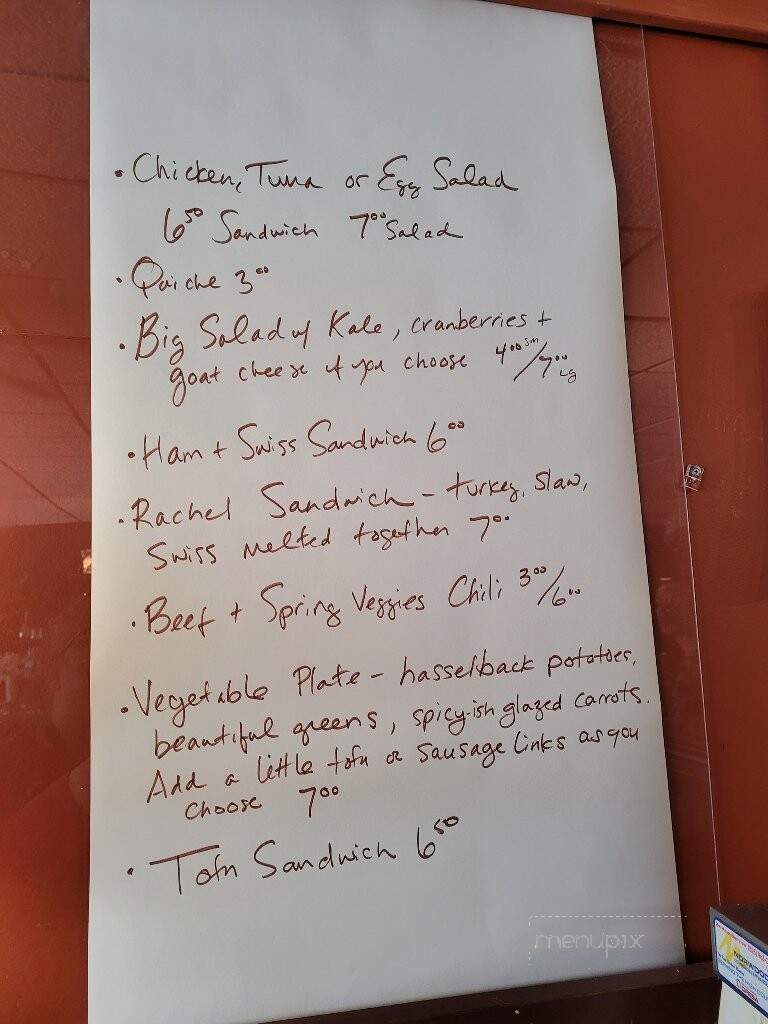 • Chicken, Tuna or Egg Salad
6⁵⁰ Sandwich 7⁰⁰ Salad
• Quiche 3⁰⁰
• Big Salad w/ Kale, cranberries +
goat cheese if you choose 4⁰⁰ sm / 7⁰⁰ Lg
• Ham + Swiss Sandwich 6⁰⁰
• Rachel Sandwich - turkey, slaw,
Swiss melted together 7⁰⁰
• Beef + Spring Veggies Chili 3⁰⁰/6⁰⁰
• Vegetable Plate - hasselback potatoes,
beautiful greens, spicy-ish glazed carrots.
Add a little tofu or sausage links as you
choose 7⁰⁰
• Tofu Sandwich 6⁵⁰
menupix